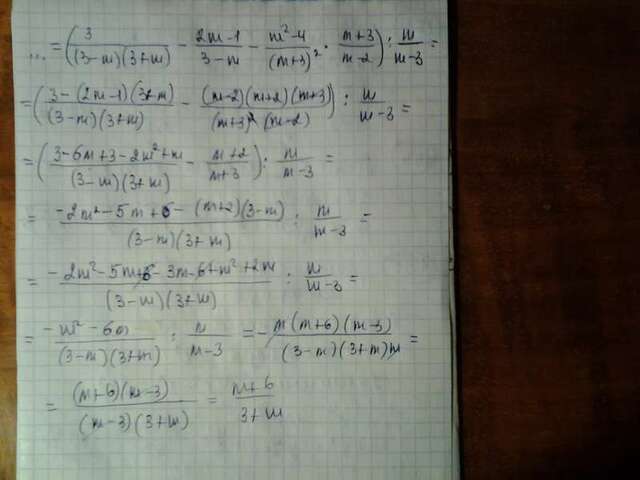 ... = (3/((3-m)(3+m)) - (2m-1)/(3-m) - (m²-4)/(m+3)² · (m+3)/(m-2)) : m/(m-3) =
= ((3-(2m-1)(3+m))/((3-m)(3+m)) - ((m-2)(m+2)(m+3))/((m+3)²(m-2))) : m/(m-3) =
= ((3-6m+3-2m²+m)/((3-m)(3+m)) - (m+2)/(m+3)) : m/(m-3) =
= (-2m²-5m+6-(m+2)(3-m))/((3-m)(3+m)) : m/(m-3) =
= (-2m²-5m+6-3m-6+m²+2m)/((3-m)(3+m)) : m/(m-3) =
= (-m²-6m)/((3-m)(3+m)) : m/(m-3) = -(m(m+6)(m-3))/((3-m)(3+m)m) =
= ((m+6)(m-3))/((m-3)(3+m)) = (m+6)/(3+m)